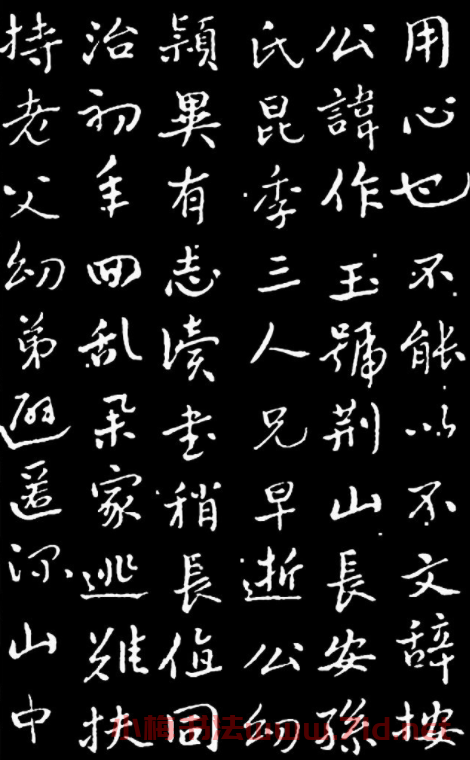 用心也不能以不文辞按
公諱作玉號荆山長安孫
氏昆季三人兄早逝公幼
穎異有志读书稍長值同
治初年回乱举家逃难扶
持老父幼弟避匿深山中